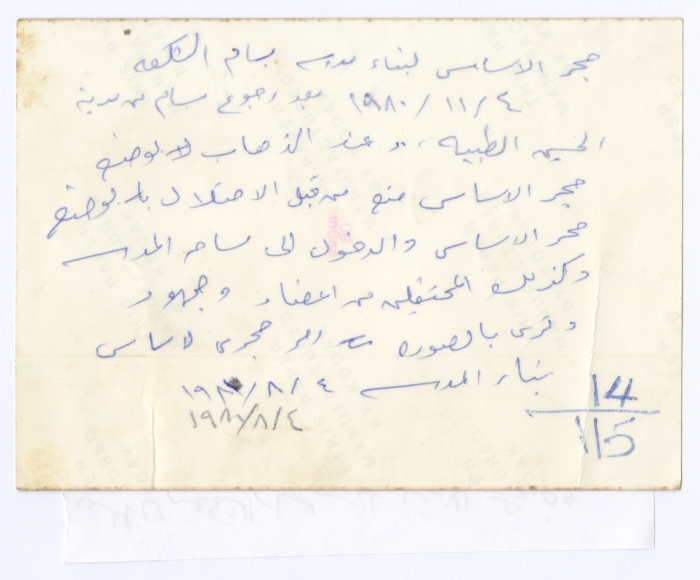 حجر الاساس لبناء مدرسه بسام الشكعه
١٩٨٠/١١/٤ بعد رجوع بسام من مدينة
الحسين الطبيه، وعند الذهاب لا بوضع
حجر الاساس منع من قبل الاحتلال بوضع
حجر الاساس والدخول الى ساحه المدرسه
وكذلك المحتفلين من اعضاء وجمهور
وترى بالصوره حجرى لاساس
بناء المدرسه ١٩٨١/٨/٤
١٩٨١/٨/٤
14
115